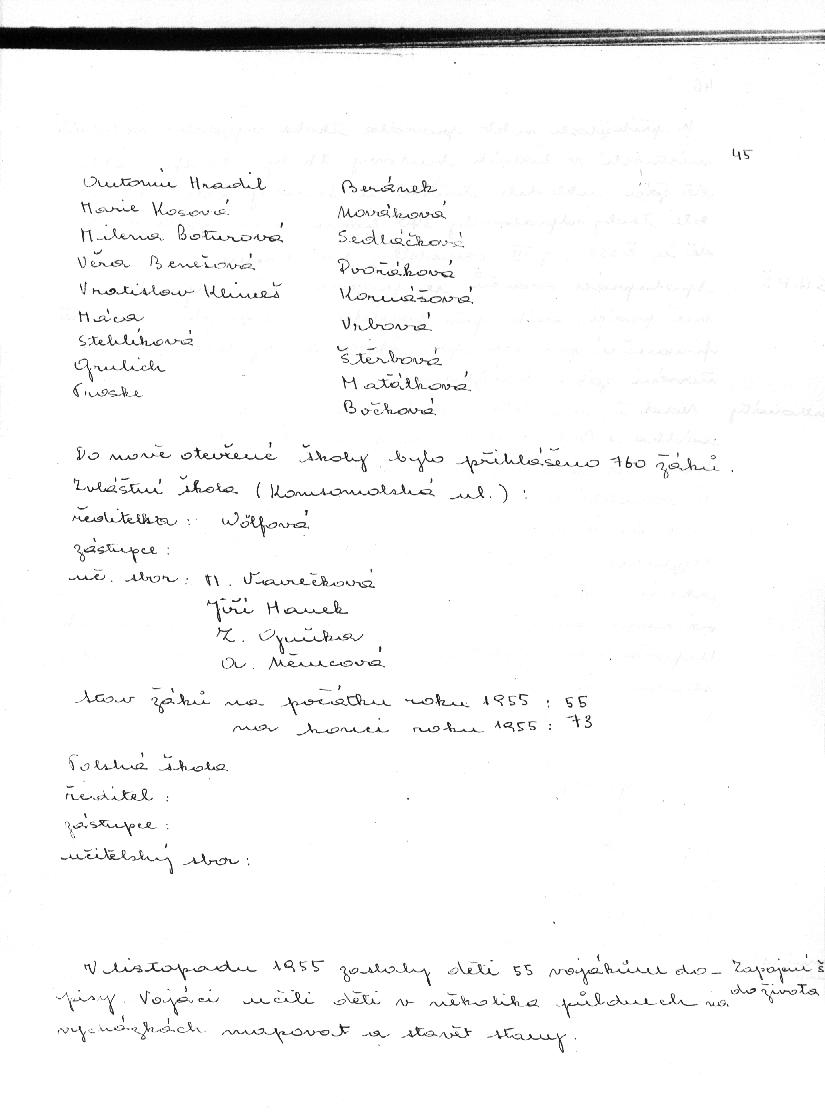 45
Antonín Hradil
Marie Kosová
Milena Boturová
Věra Benešová
Vratislav Klimeš
Háca
Stehlíková
Grulich
Beránek
Nováková
Sedláčková
Dvořáková
Kormášová
Vrbová
Štěrbová
Matálková
Bočková
Do nově otevřené školy bylo přihlášeno 760 žáků.
Zvláštní škola (Komsomolská ul.) :
ředitelka : Wölfová
zástupce :
uč. sbor : M. Vavrečková
Jiří Hanek
Z.
A. Němcová
stav žáků na počátku roku 1955 : 55
na konci roku 1955 : 73
Polská škola
ředitel :
zástupce :
učitelský sbor :
V listopadu 1955 zaslaly děti 55 vojákům do-
pisy. Vojáci učili děti v několika půldnech na
vycházkách mapovat a stavět stany.
Zapojení š
do života